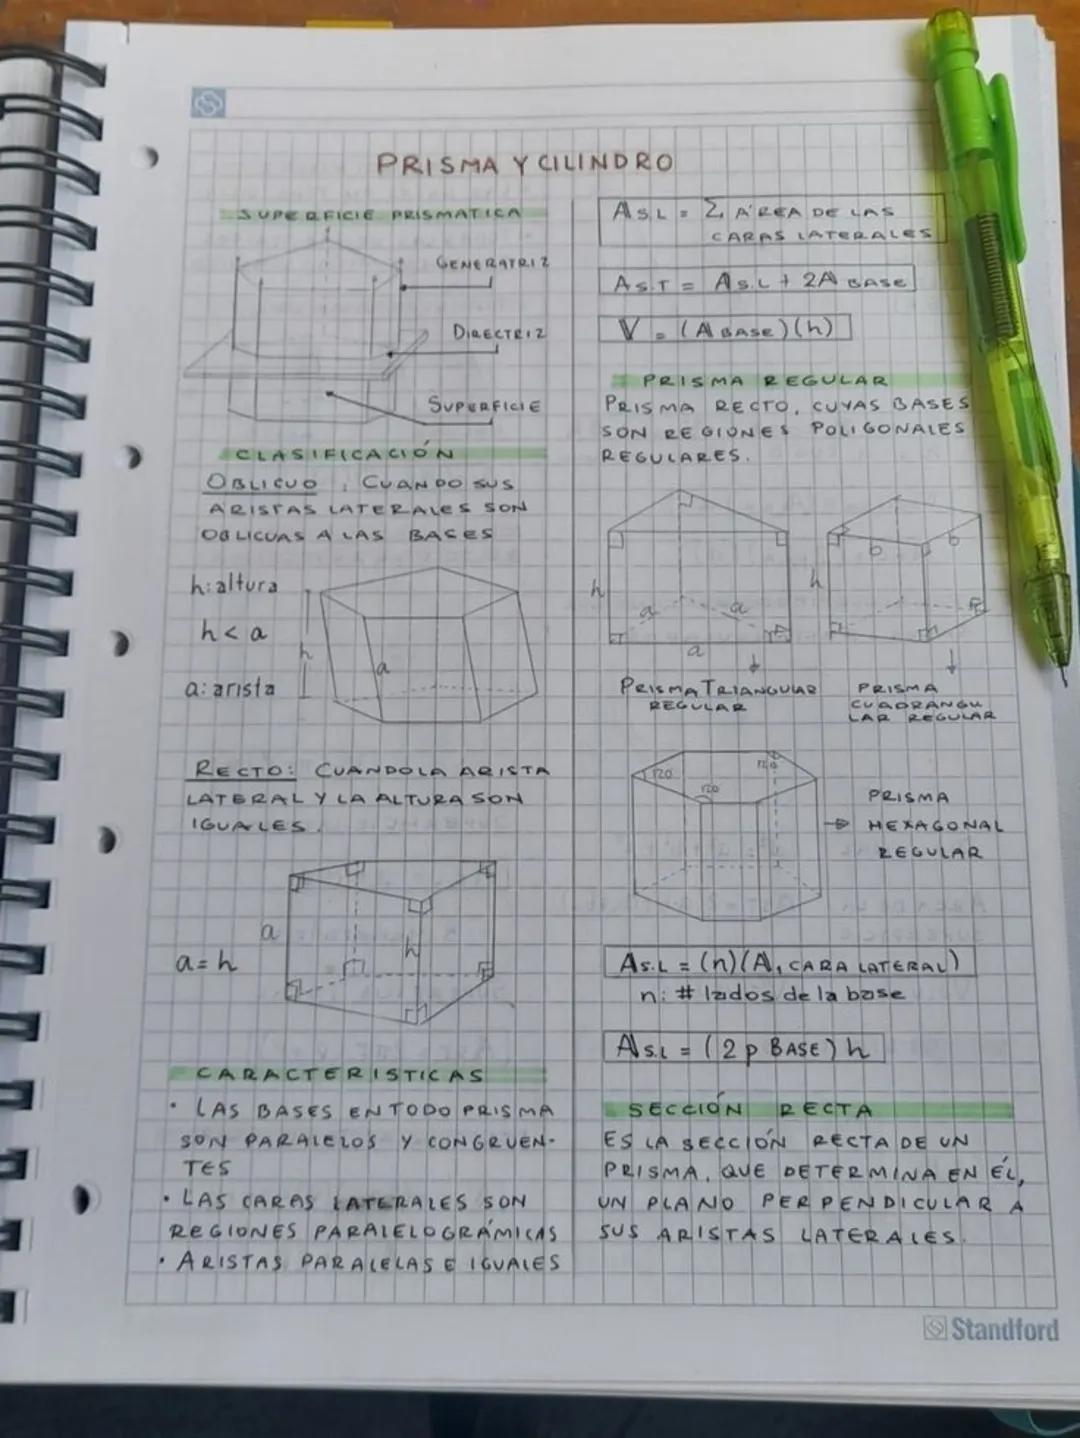 PRISMA Y CILINDRO
SUPERFICIE PRISMATICA
GENERATRIZ
DIRECTRIZ
SUPERFICIE
CLASIFICACIÓN
OBLICUO: CUANDO SUS
ARISTAS LATERALES SON
OBLICUAS A LAS BASES
h: altura
h < a
a: arista
h
a
RECTO: CUANDO LA ARISTA
LATERAL Y LA ALTURA SON
IGUALES.
a
h
a = h
CARACTERISTICAS
• LAS BASES EN TODO PRISMA
SON PARALELOS Y CONGRUEN-
TES
• LAS CARAS LATERALES SON
REGIONES PARALELOGRÁMICAS
• ARISTAS PARALELAS E IGUALES
A S.L = Σ ÁREA DE LAS
CARAS LATERALES
A S.T = A S.L + 2A BASE
V = (A BASE)(h)
PRISMA REGULAR
PRISMA RECTO, CUYAS BASES
SON REGIONES POLIGONALES
REGULARES.
h
a
a
a
h
b
b
PRISMA TRIANGULAR
REGULAR
PRISMA
CUADRANGU
LAR REGULAR
120
120
120
PRISMA
HEXAGONAL
REGULAR
A S.L = (n)(A, CARA LATERAL)
n: # lados de la base
A S.L = (2 p BASE) h
SECCIÓN RECTA
ES LA SECCIÓN RECTA DE UN
PRISMA, QUE DETERMINA EN ÉL,
UN PLANO PERPENDICULAR A
SUS ARISTAS LATERALES.
Standford